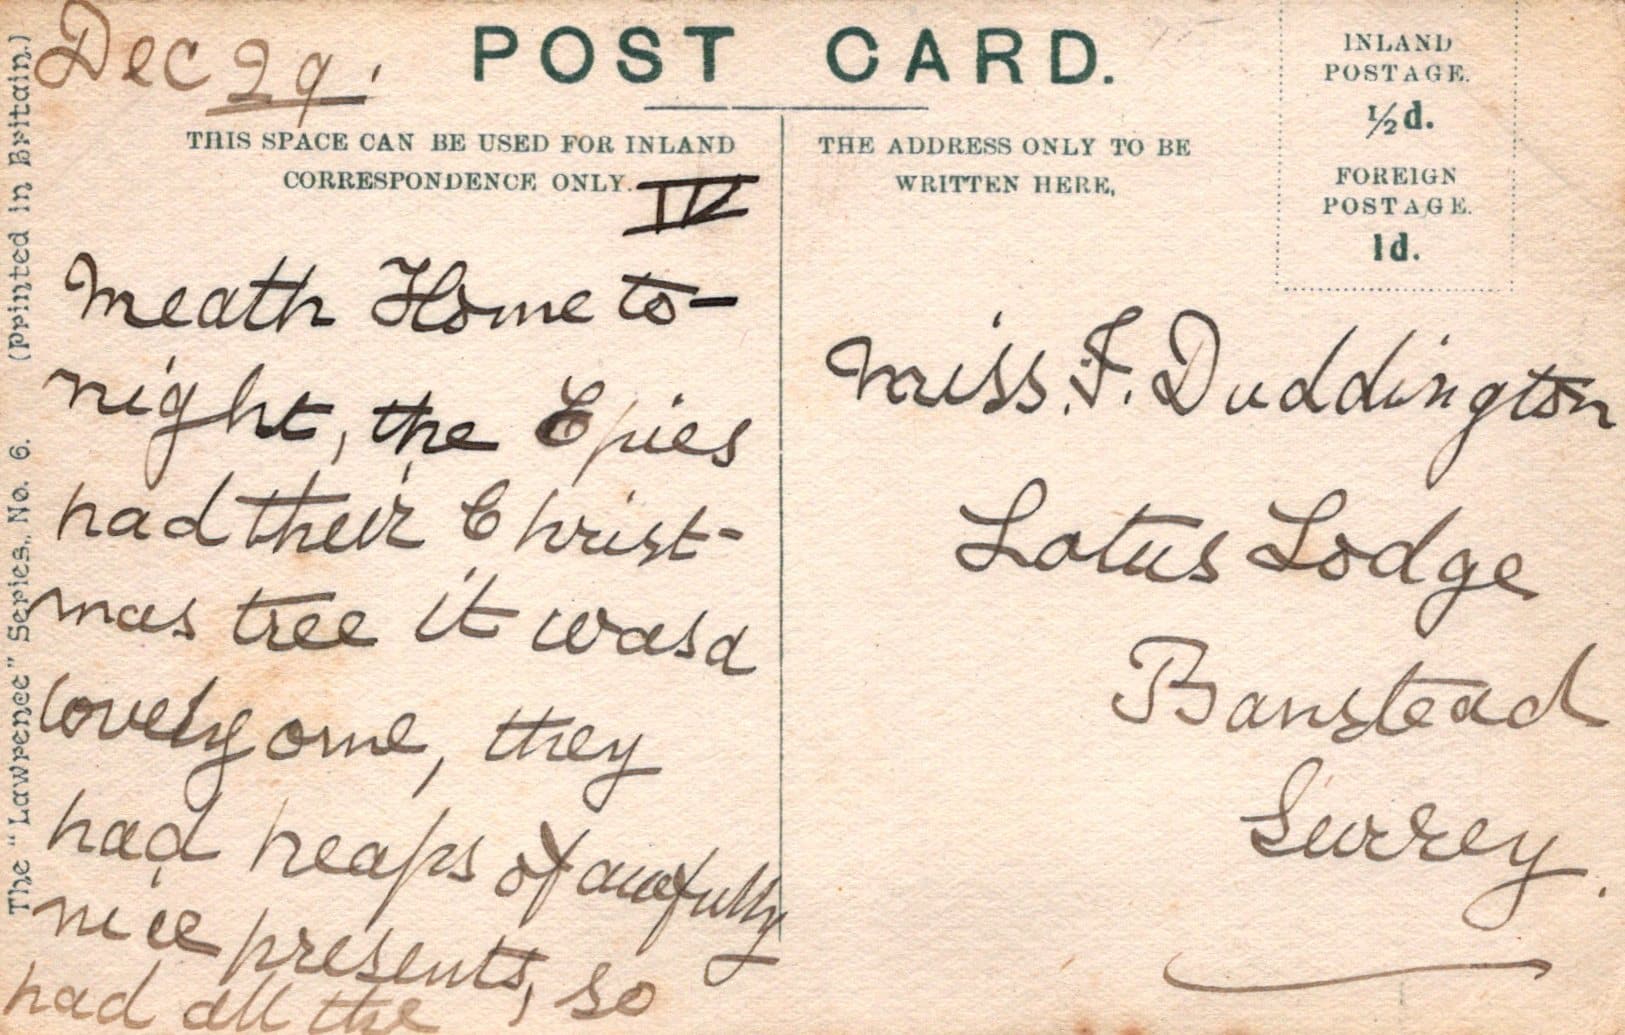 Dec 29.
POST CARD.
THIS SPACE CAN BE USED FOR INLAND
CORRESPONDENCE ONLY.
IV
Meath Home to-
night, the Epies
had their Christ-
mas tree it was a
lovely one, they
had heaps of awfully
nice presents, so
had all the
THE ADDRESS ONLY TO BE
WRITTEN HERE,
INLAND
POSTAGE.
½d.
FOREIGN
POSTAGE.
1d.
Miss. F. Duddington
Lotus Lodge
Banstead
Surrey.
The "Lawrence" Series, No. 6. (Printed in Britain.)